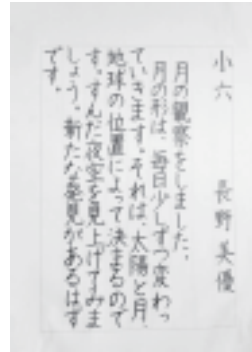 小六 長野美優
月の観察をしました。
月の形は、毎日少しずつ変わっ
ていきます。それは、太陽と月、
地球の位置によって決まるので
す。すんだ夜空を見上げてみま
しょう。新たな発見があるはず
です。